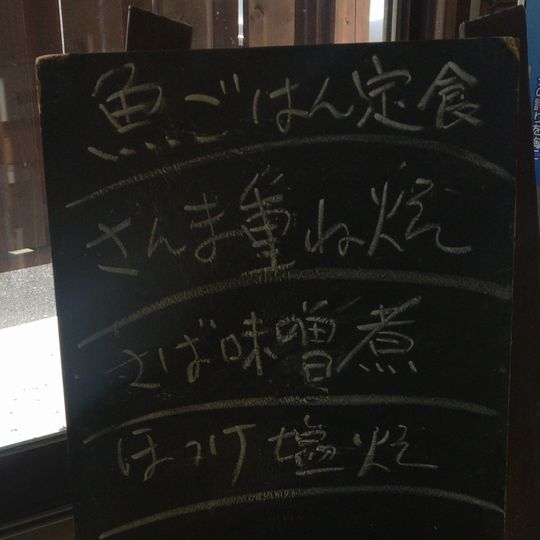 魚ごはん定食
さんま重ね焼
さば味噌煮
ほっけ塩焼